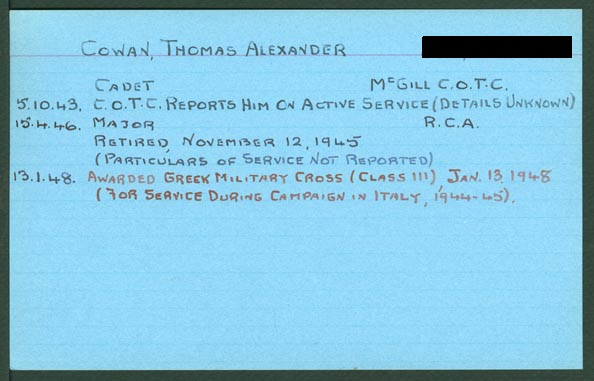 COWAN, THOMAS ALEXANDER
CADET McGILL C.O.T.C.
5.10.43. C.O.T.C. REPORTS HIM ON ACTIVE SERVICE (DETAILS UNKNOWN)
15.4.46. MAJOR R.C.A.
RETIRED, NOVEMBER 12, 1945
(PARTICULARS OF SERVICE NOT REPORTED)
13.1.48. AWARDED GREEK MILITARY CROSS (CLASS III) JAN. 13, 1948
(FOR SERVICE DURING CAMPAIGN IN ITALY, 1944-45).